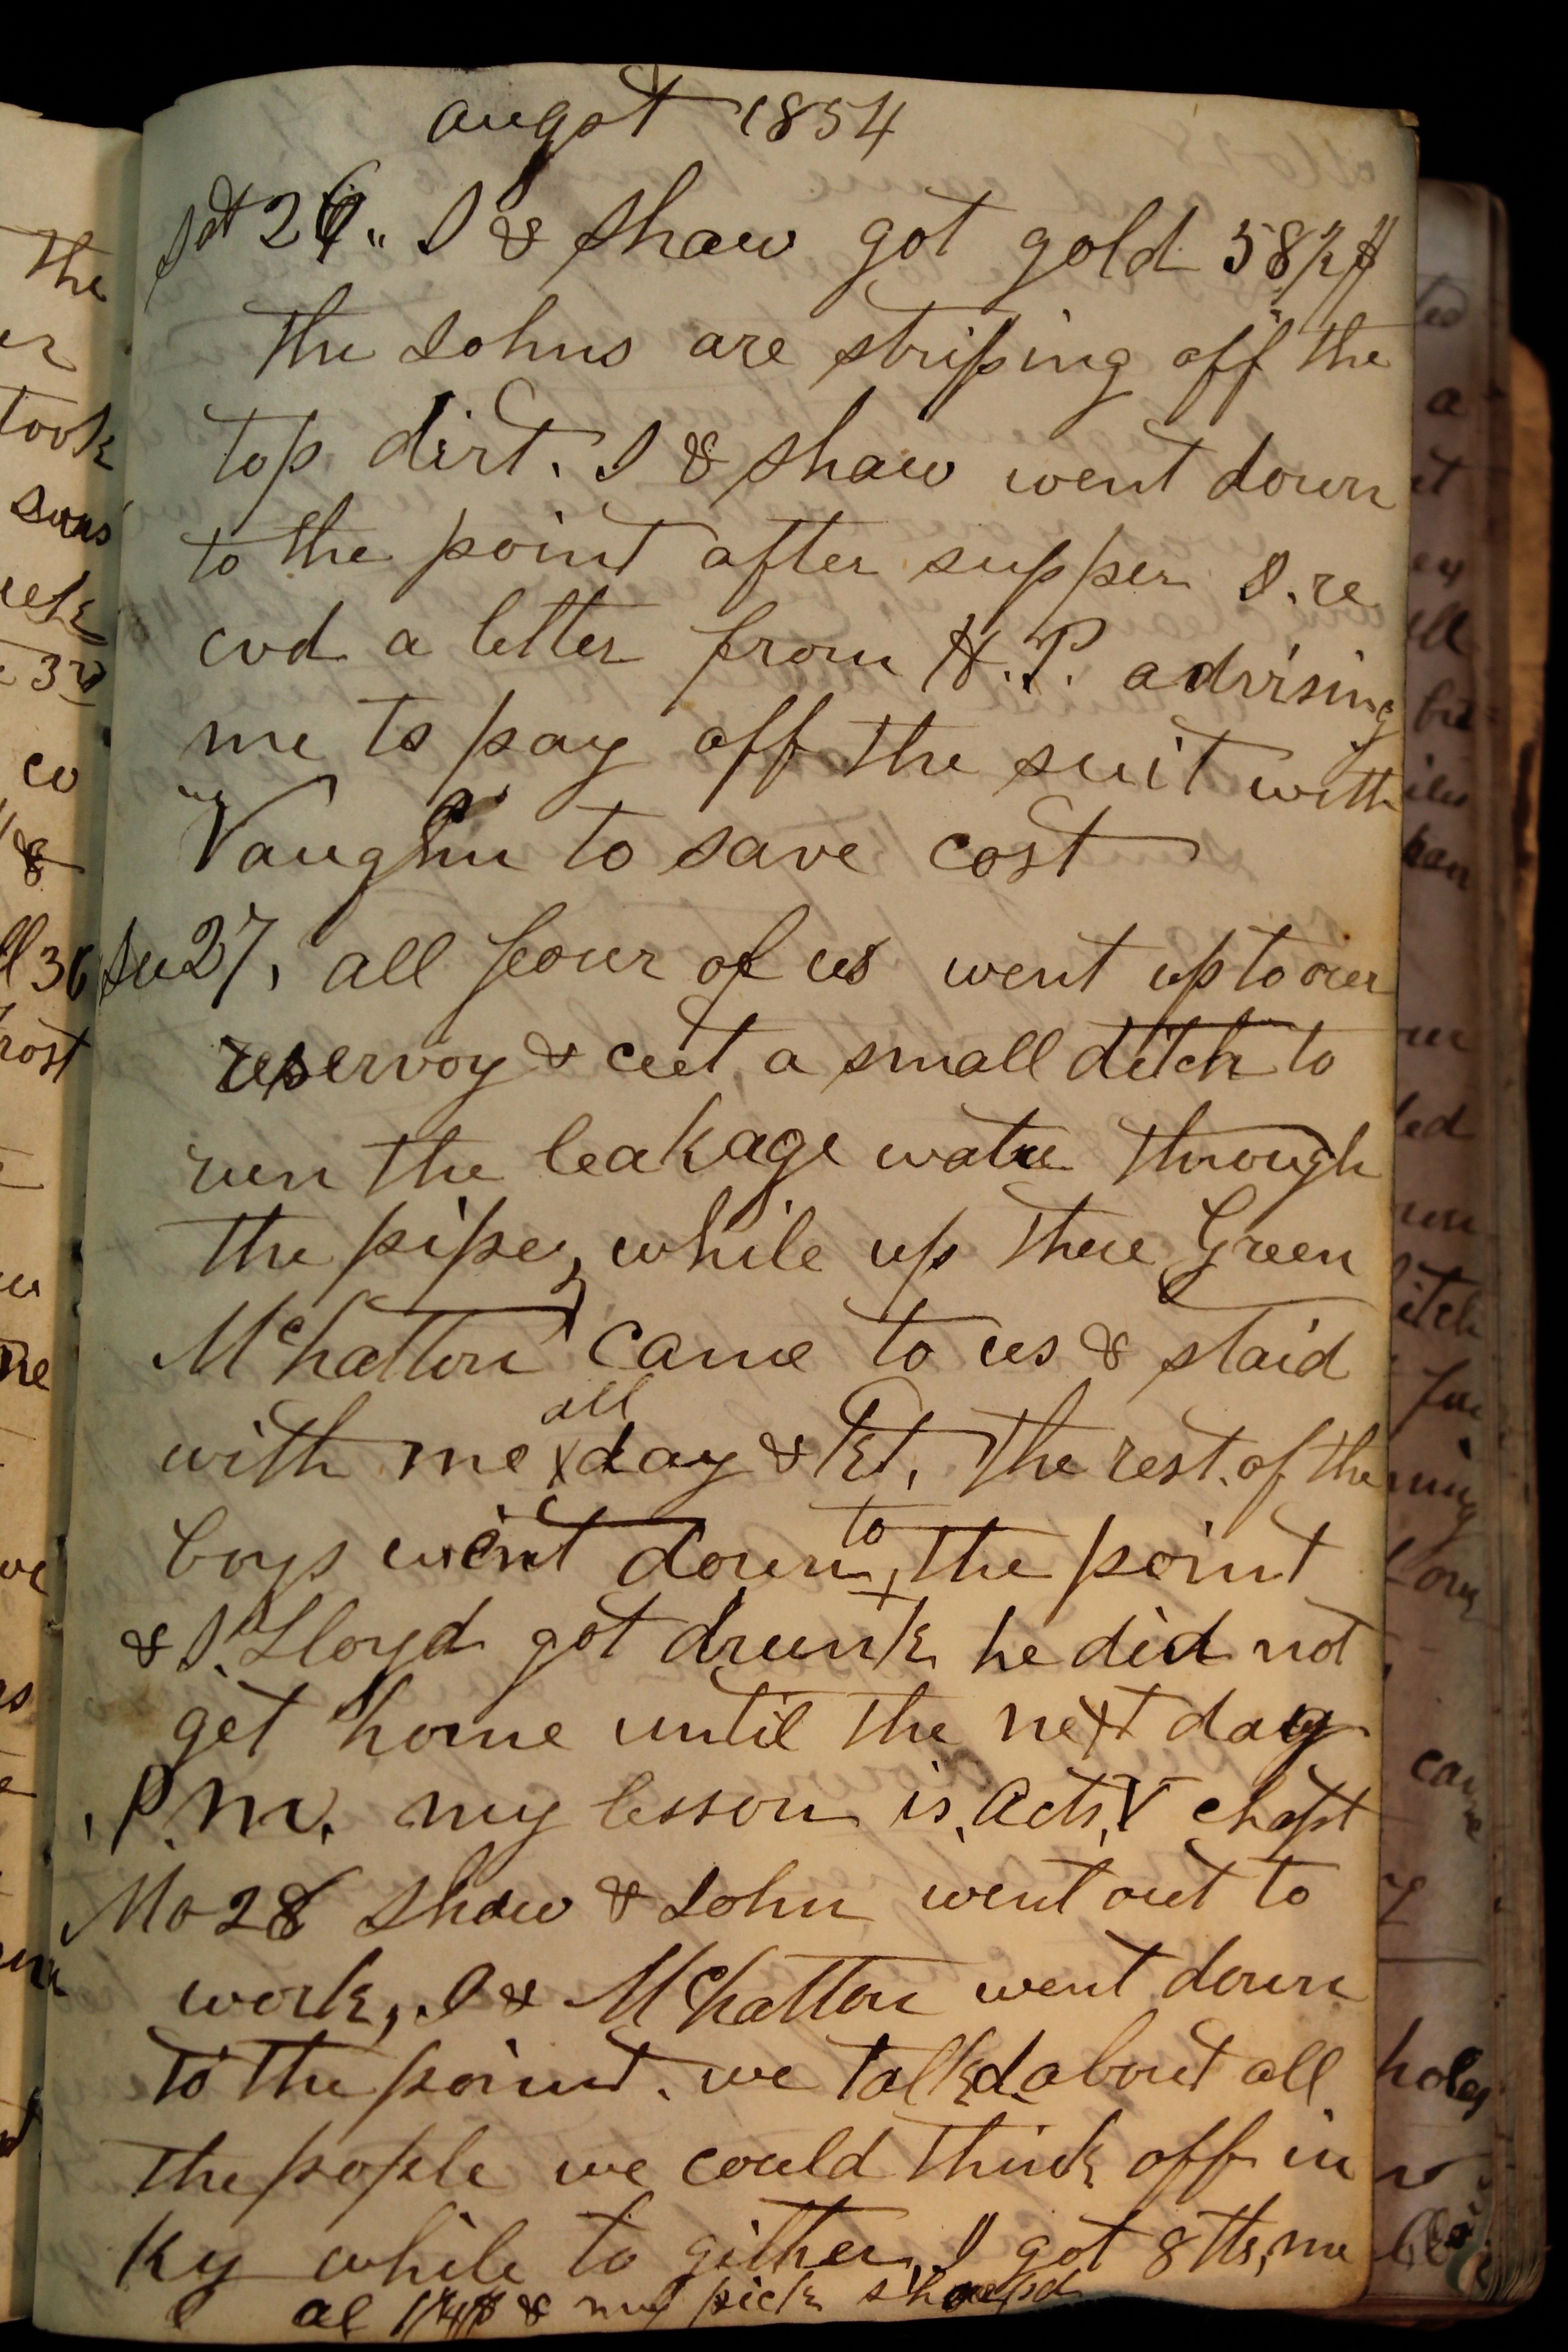 augst 1854
Sat 26„ I & Shaw got gold 58½ $
the Johns are striping off the
top dirt. I & Shaw went down
to the point after supper I. re
cvd a letter from H.P. advising
me to pay off the suit with
Vaughn to save cost
Su 27, all four of us went up to our
reservoy & cut a small ditch to
run the leakage water through
the pipe, while up there Green
McHatton came to us & staid
with me all day & Et. The rest of the
boys went down to the point
& J. Lloyd got drunk he did not
get home until the next day
P.M. my lesson is Acts, V chapt
Mo 28 Shaw & John went out to
work, I & McHatton went down
to the point. we talkd about all
the pople we could think off in
Ky while to gither, I got 8 tts, me
al & my pick sharpd
the
took
3rd
co
&
36
rost
a
ditch
came
holes